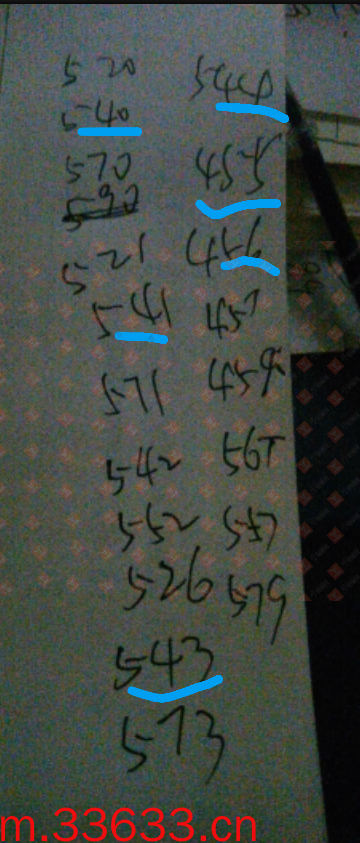 520
540
570
590
521
541
571
542
552
526
543
573
544
455
456
457
459
567
557
579
m.33633.cn